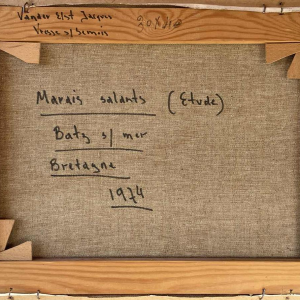 Vander Elst Jacques
Vresse s/Semois
Marais salants (Etude)
Batz s/ mer
Bretagne
1974